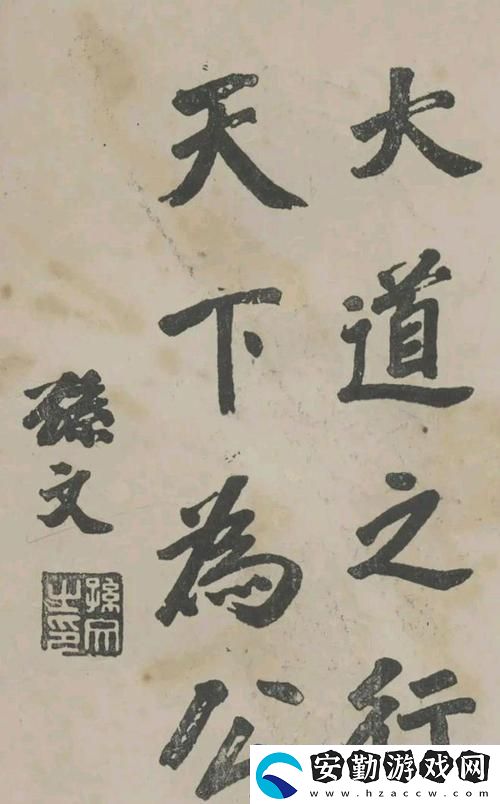 大道之行
天下為公
孫文
孫文之印
安勤游戏网
www.hzaccw.com